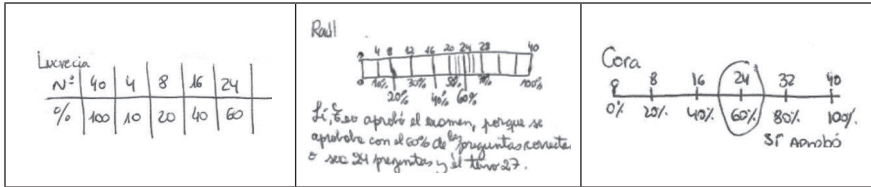 Lucrecia
Nº 40 4 8 16 24
% 100 10 20 40 60
Raúl
0 4 8 12 16 20 24 28 40
0 10% 30% 50% 100%
20% 40% 60%
Sí, aprobó el examen, porque se
aprobaba con el 60% de las preguntas correctas
o sea 24 preguntas y él tuvo 27.
Cora
0 8 16 24 32 40
0% 20% 40% 60% 80% 100%
SÍ APROBÓ